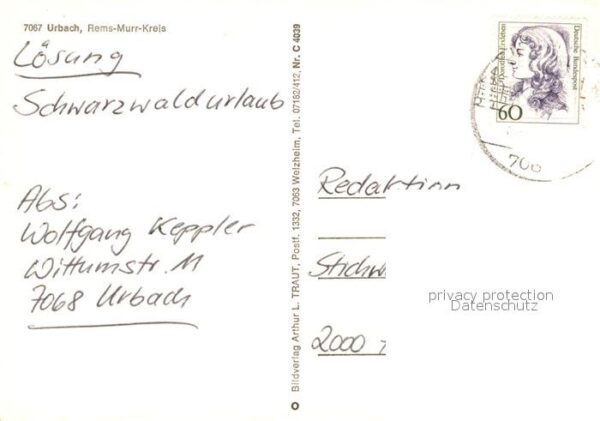 7067 Urbach, Rems-Murr-Kreis
Lösung
Schwarzwaldurlaub
Abs:
Wolfgang Keppler
Wittumstr. 11
7068 Urbach
Bildverlag Arthur L. TRAUT, Postf. 1332, 7063 Welzheim, Tel. 07182/412, Nr. C 4039
Deutsche Bundespost
60
706
Redaktion
Stichw
2000
privacy protection
Datenschutz